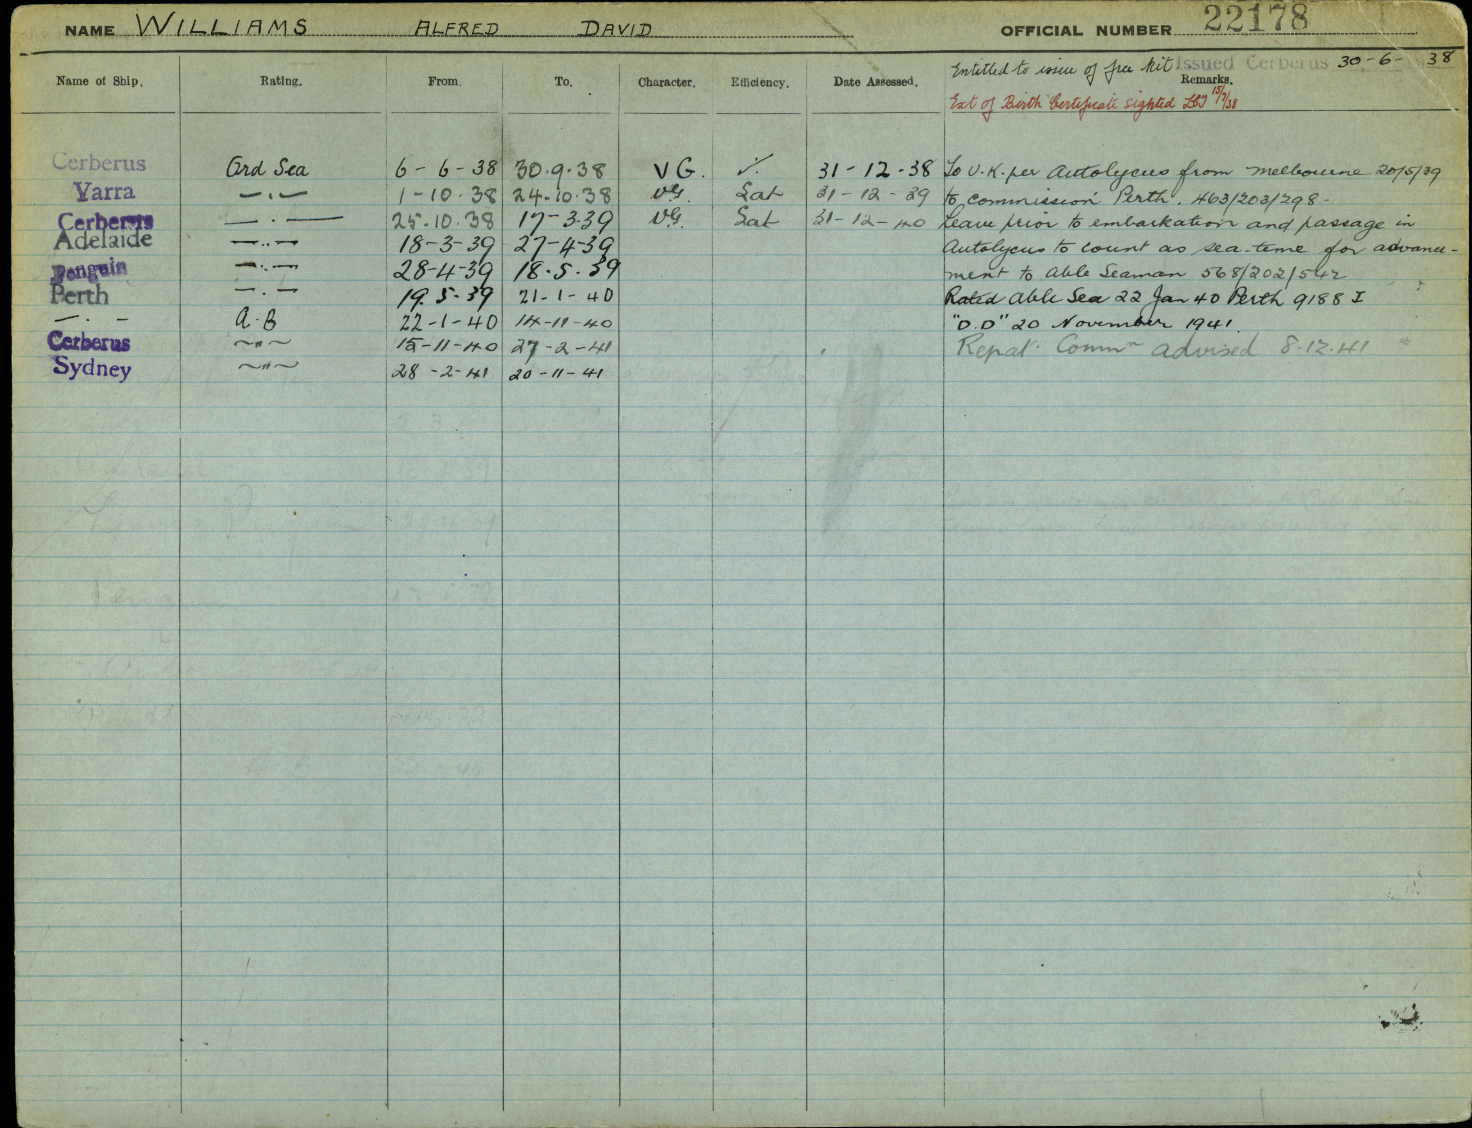 NAME WILLIAMS ALFRED DAVID OFFICIAL NUMBER 22178
Entitled to issue of free Kit Issued Cerberus 30-6-38
Name of Ship. Rating. From. To. Character. Efficiency. Date Assessed. Remarks.
Ext of Birth Certificate sighted 15/7/38
Cerberus Ord Sea 6-6-38 30.9.38 VG. 31-12-38 To U.K. per Autolycus from Melbourne 20/5/39
Yarra —.— 1-10.38 24.10.38 VG. Sat 31-12-39 to commission Perth. 463/203/298.
Cerberus —.— 25.10.38 17-3-39 VG. Sat 31-12-40 Leave prior to embarkation and passage in
Adelaide —..— 18-3-39 27-4-39 Autolycus to count as sea-time for advance-
Penguin —..— 28-4-39 18.5.39 ment to Able Seaman 568/202/542
Perth —.— 19.5.39 21-1-40 Rated Able Sea 22 Jan 40 Perth 9188 I
—.— A.B 22-1-40 14-11-40 "D.D" 20 November 1941.
Cerberus ~"~ 15-11-40 27-2-41 Repat. Commn advised 8.12.41
Sydney ~"~ 28-2-41 20-11-41